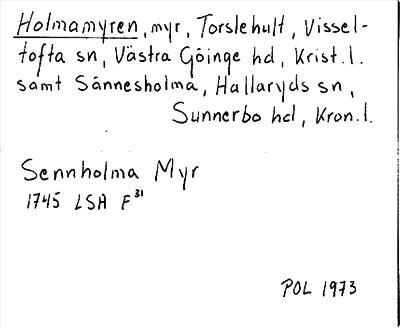 Holmamyren, myr, Torslehult, Vissel-
tofta sn, Västra Göinge hd, Krist. l.
samt Sännesholma, Hallaryds sn,
Sunnerbo hd, Kron. l.
Sennholma Myr
1745 LSA F³¹
POL 1973